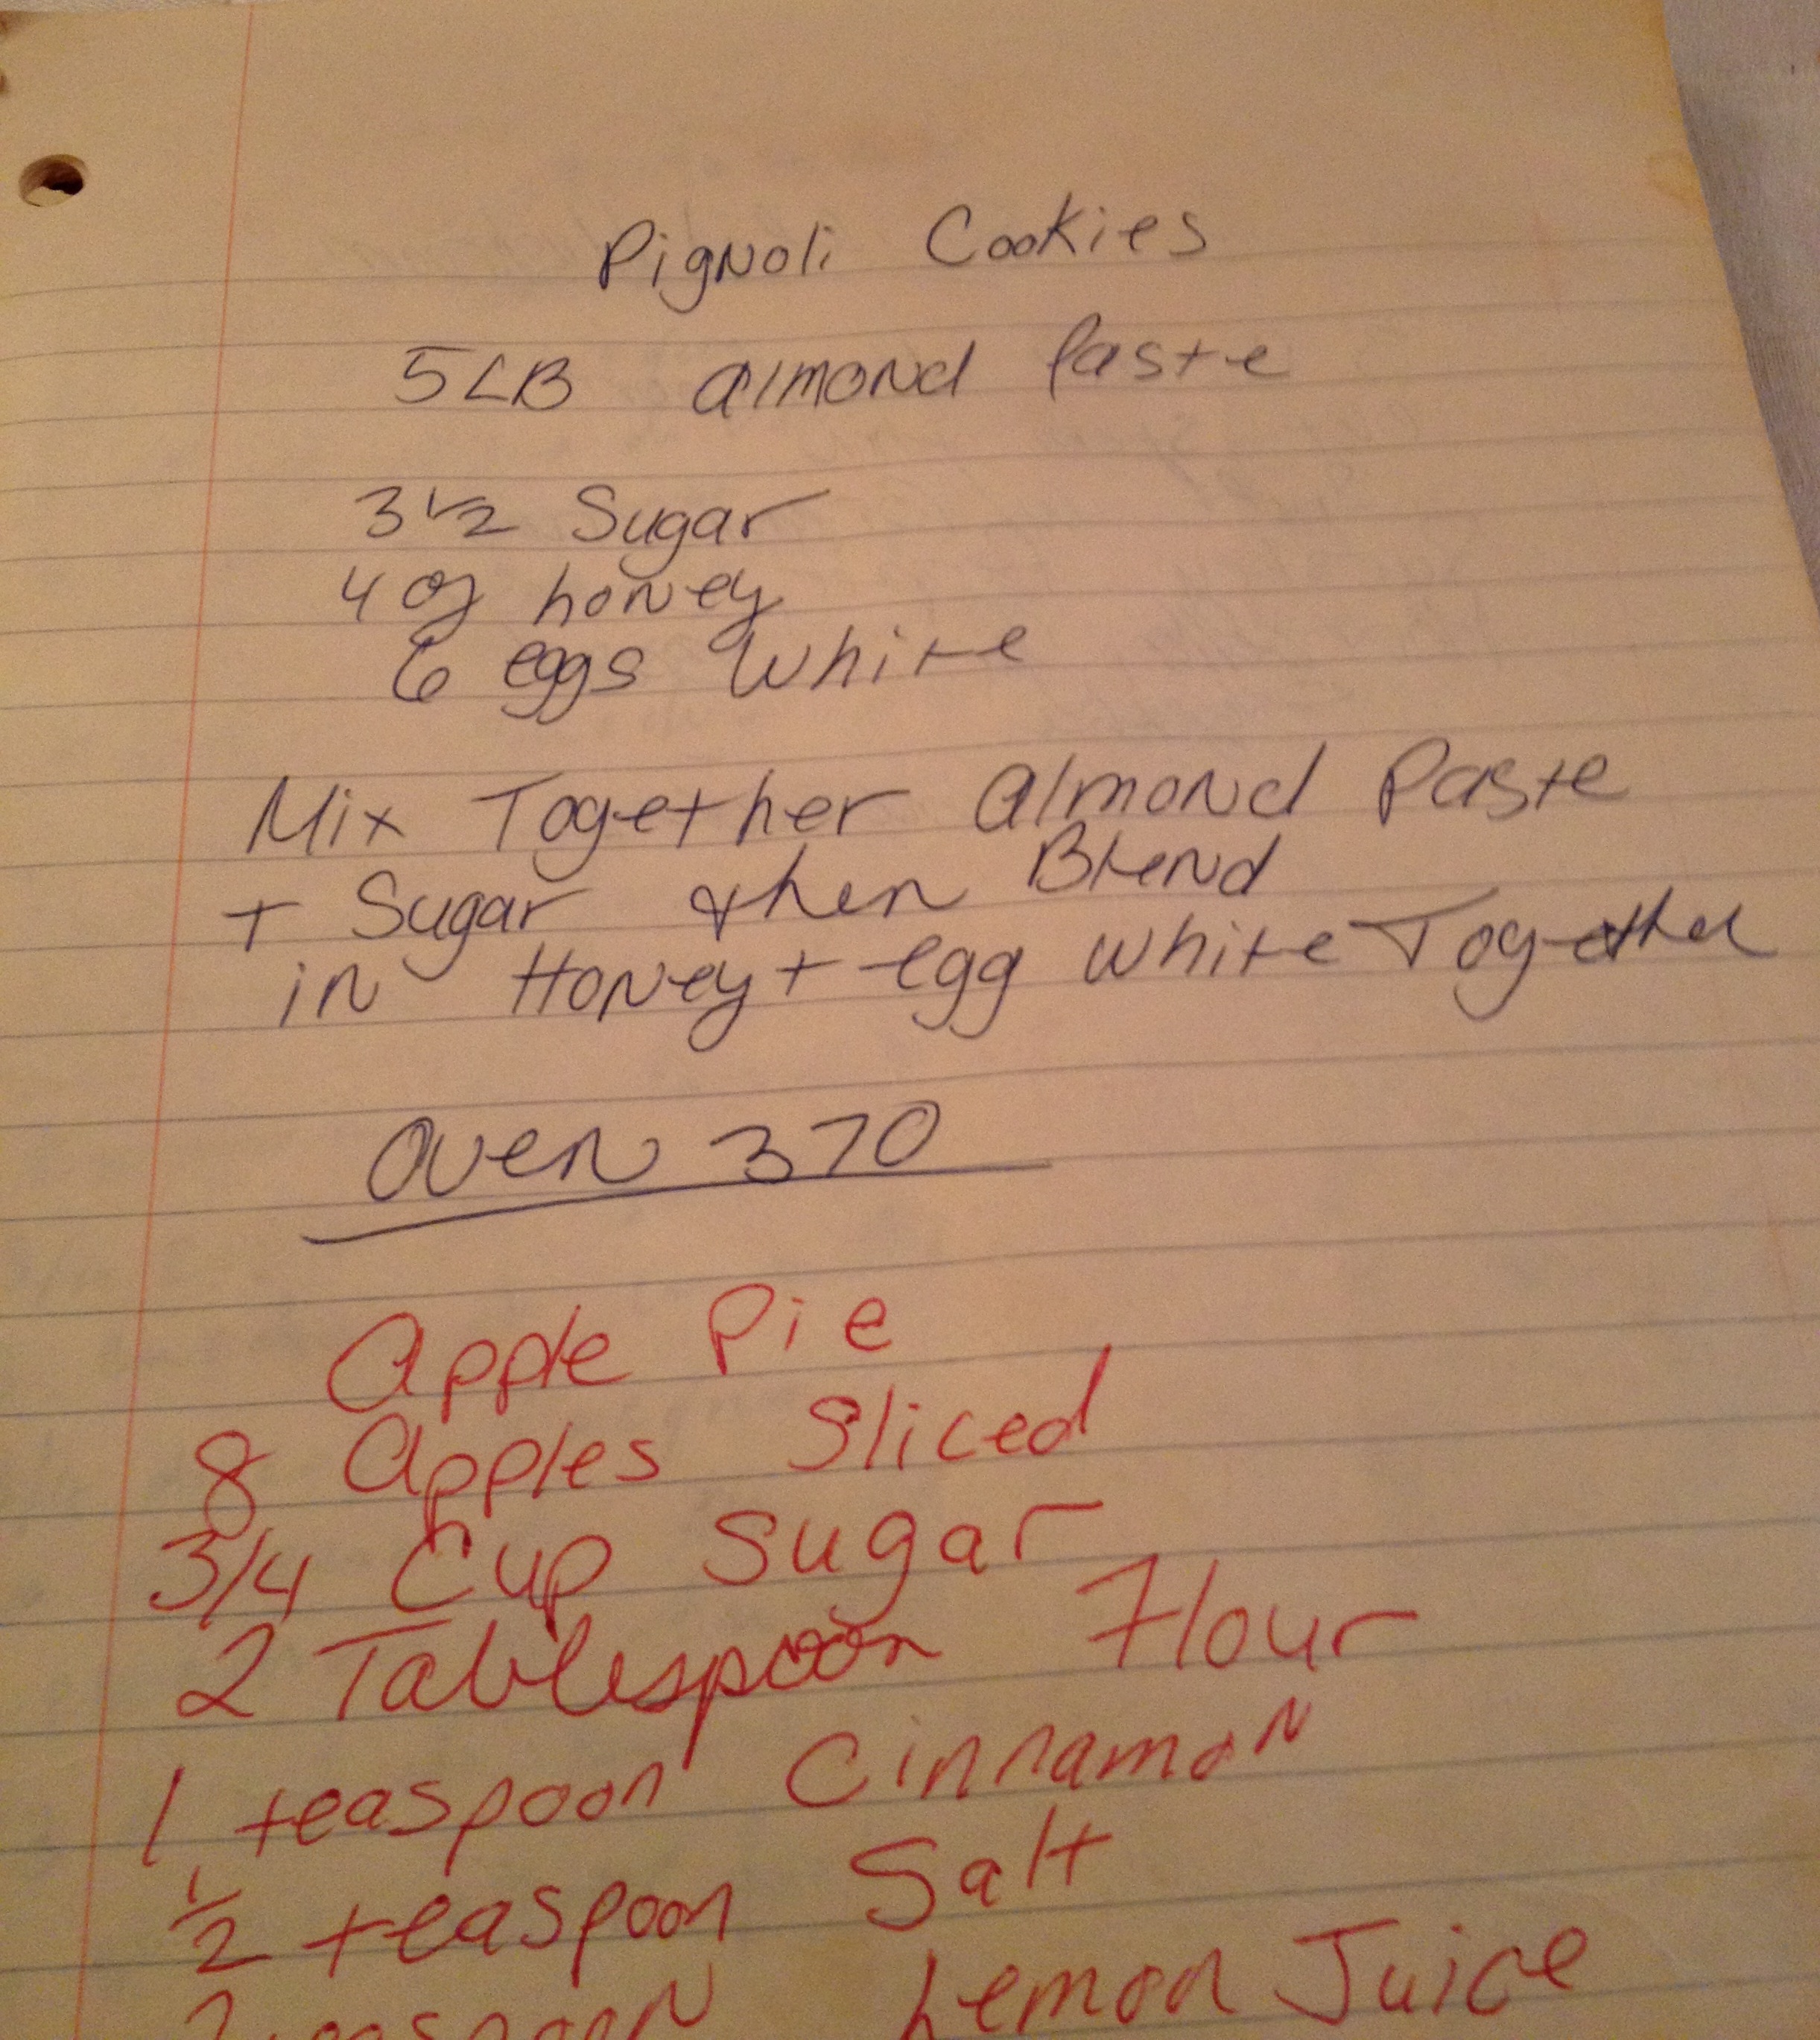 Pignoli Cookies
5LB almond Paste
3 1/2 Sugar
4 oz honey
6 eggs white
Mix Together almond Paste
+ Sugar then Blend
in Honey + egg white Together
Oven 370
Apple Pie
8 Apples Sliced
3/4 Cup Sugar
2 Tablespoon Flour
1 teaspoon Cinnamon
1/2 teaspoon Salt
Lemon Juice